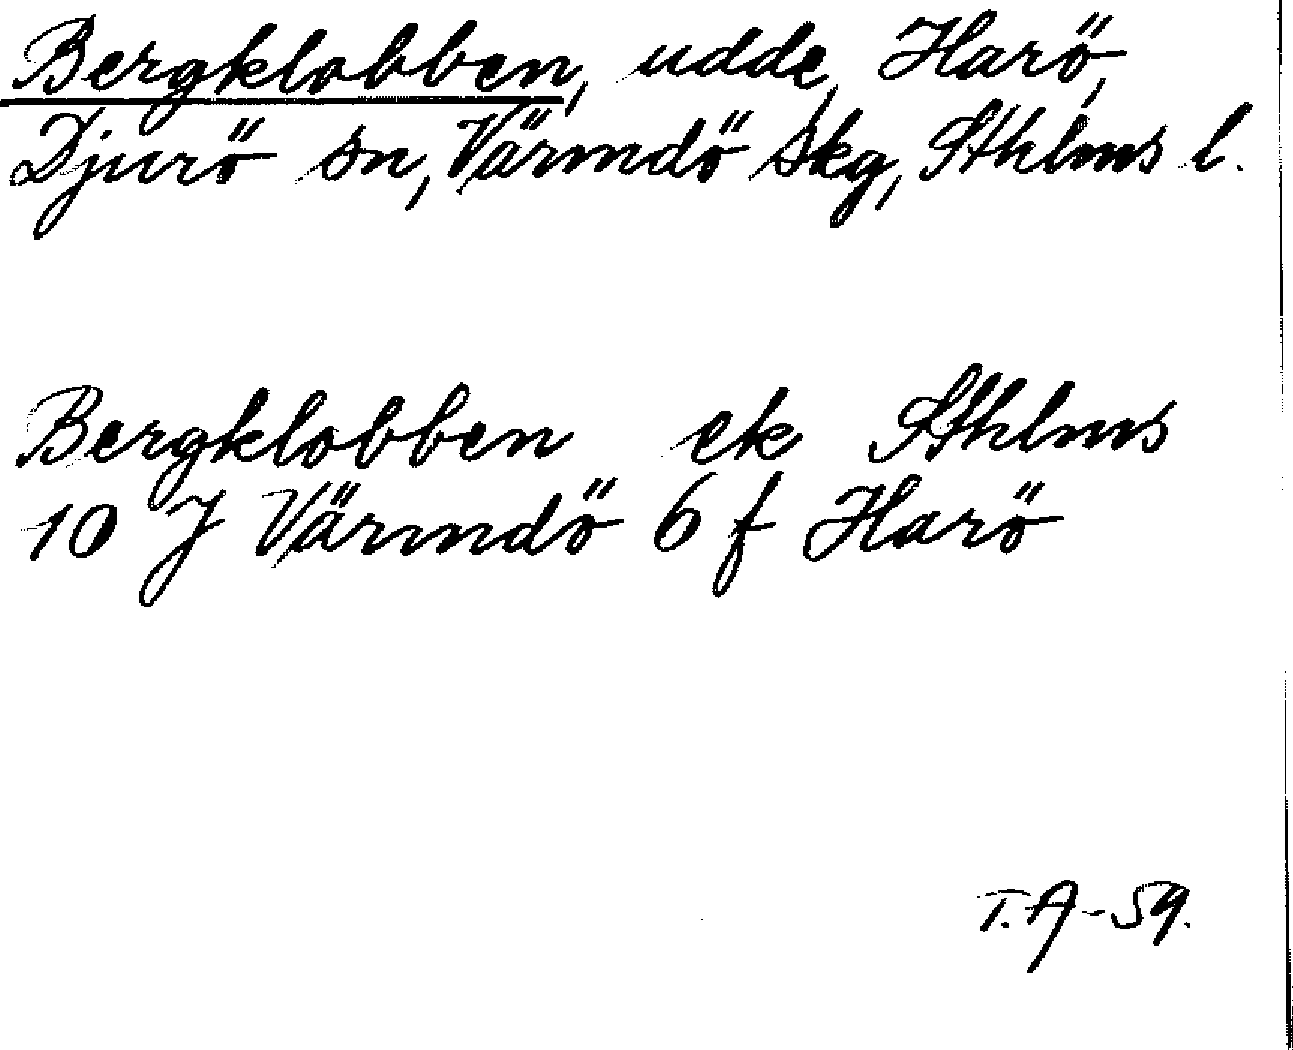 Bergklobben, udde, Harö,
Djurö sn, Värmdö skg, Sthlms l.
Bergklobben ek Sthlms
10 J Värmdö 6 f Harö
T. A-59.